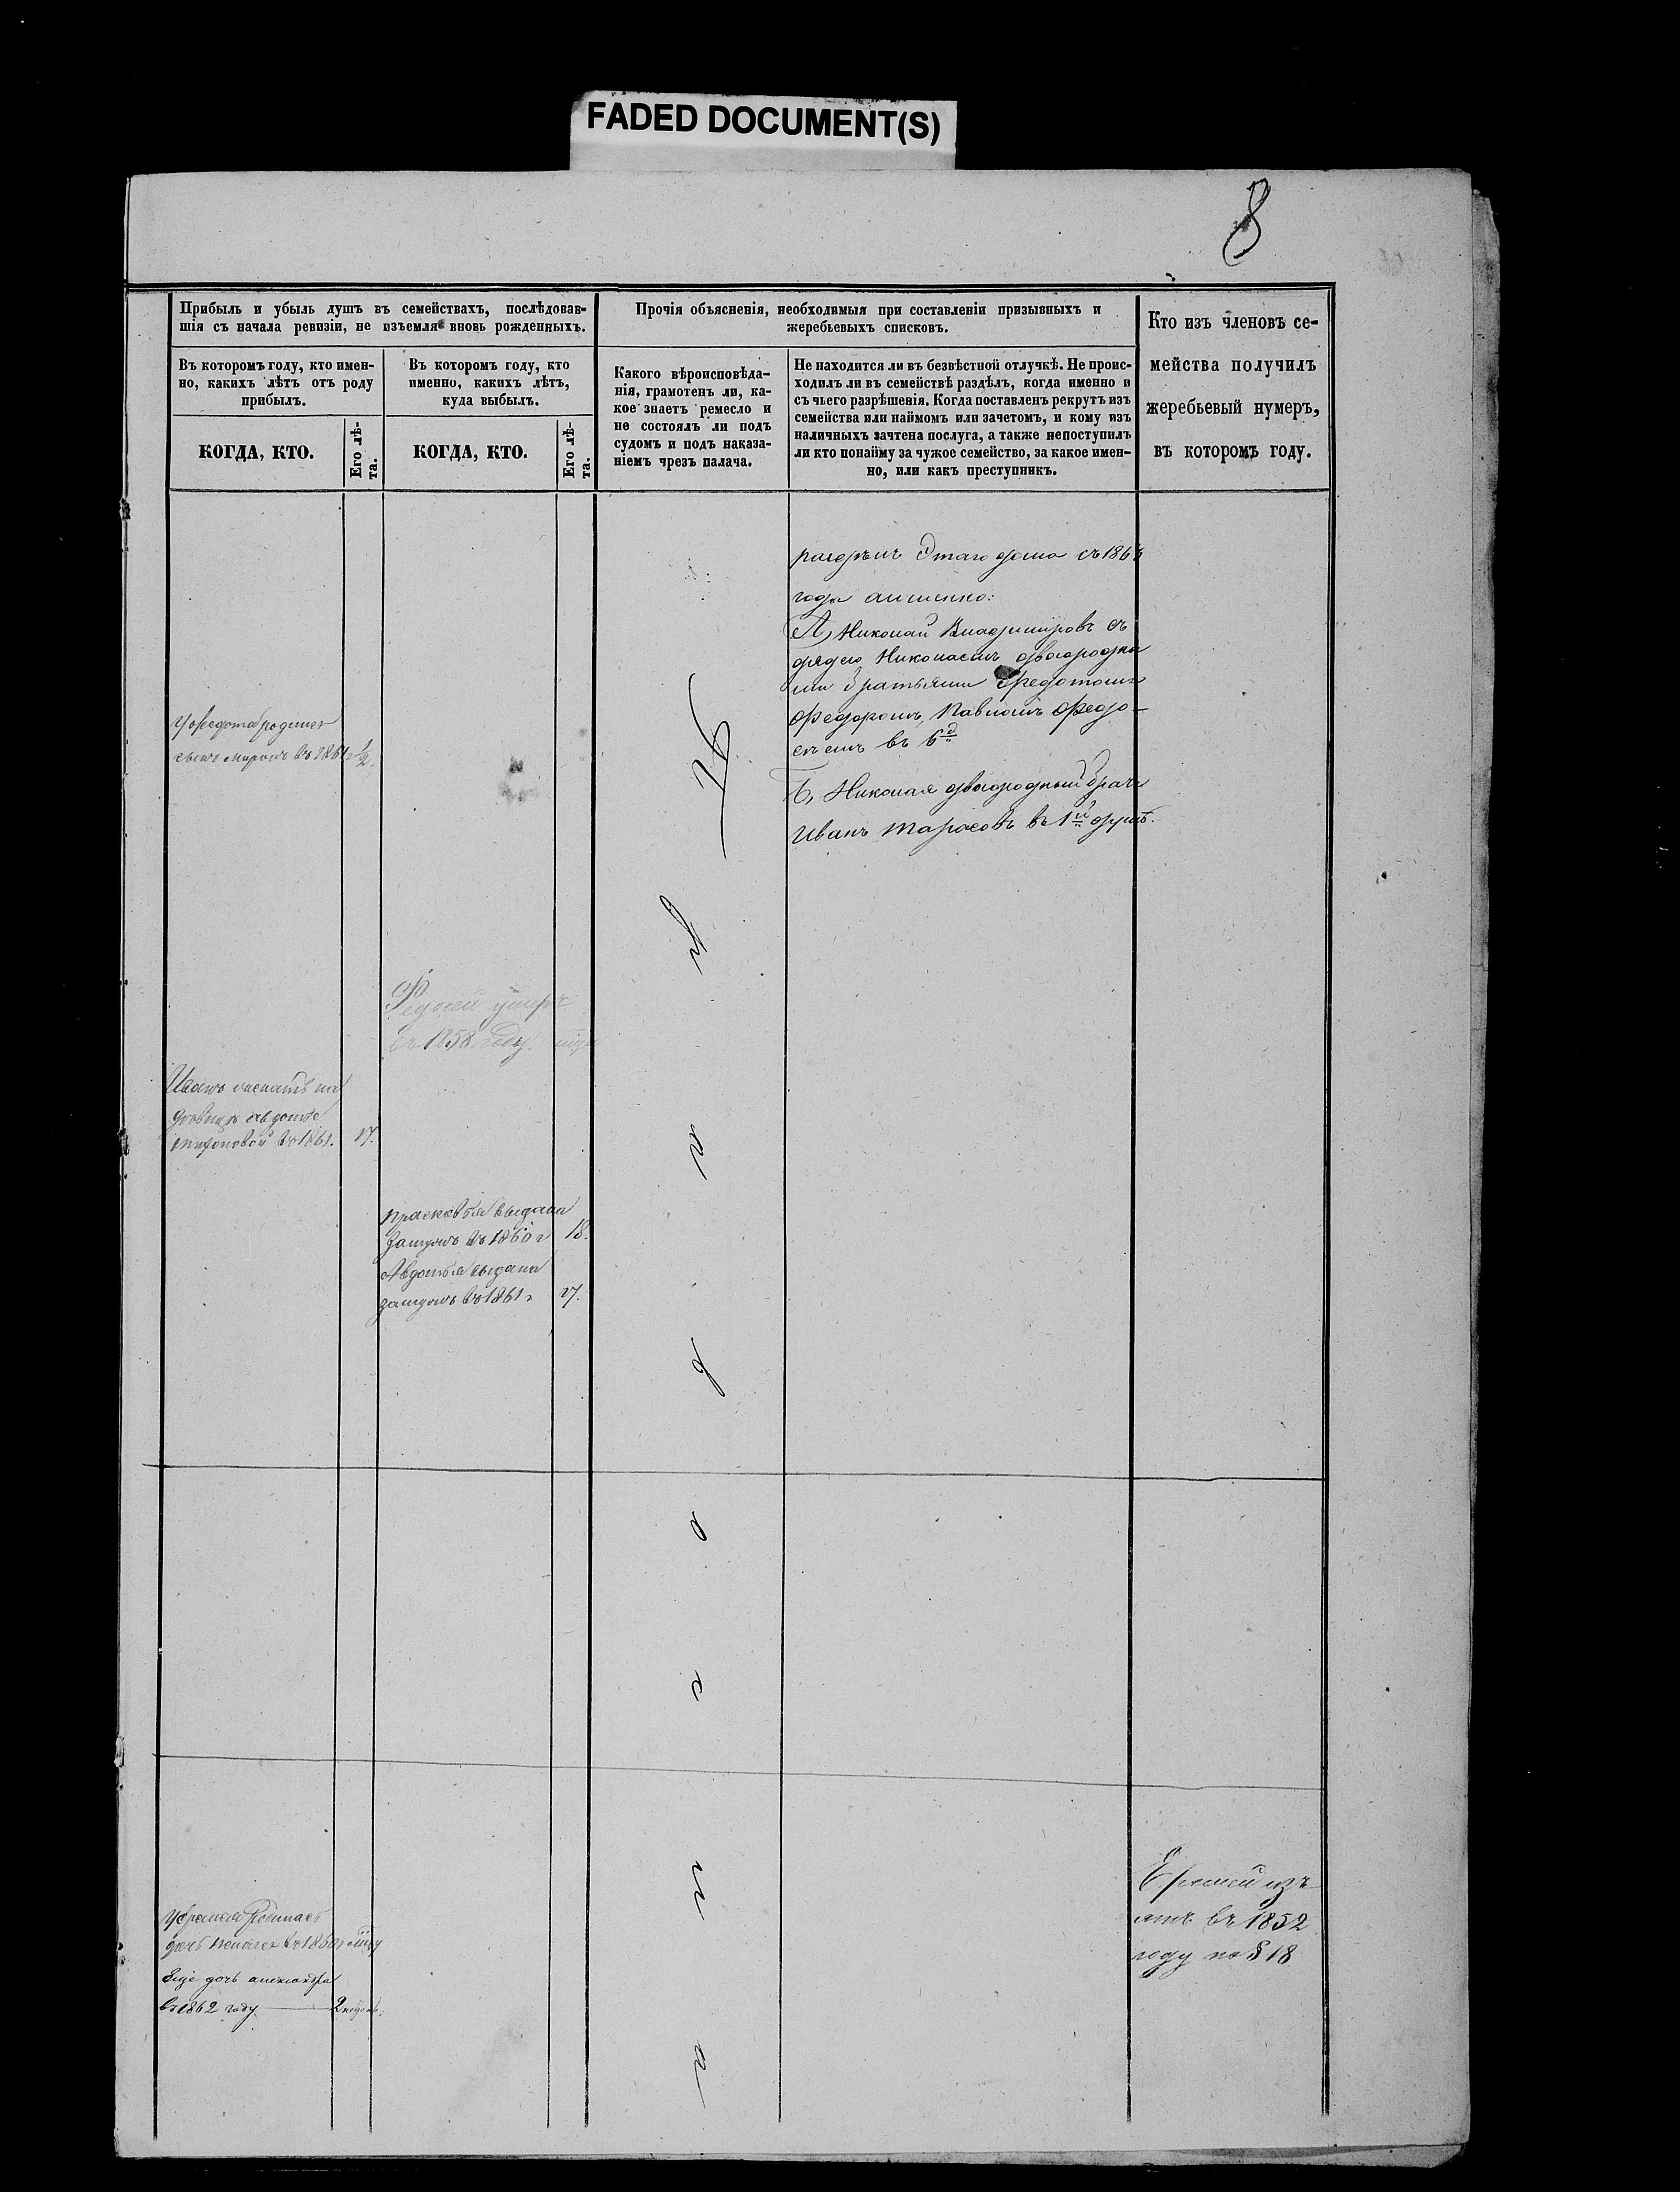 FADED DOCUMENT(S)
8
Прибыль и убыль душъ въ семействахъ, послѣдовав-
шія съ начала ревизіи, не изъемля вновь рожденныхъ.
Въ которомъ году, кто имен-
но, какихъ лѣтъ отъ роду
прибылъ.
КОГДА, КТО.
Его лѣ-
та.
Въ которомъ году, кто
именно, какихъ лѣтъ,
куда выбылъ.
КОГДА, КТО.
Его лѣ-
та.
Прочія объясненія, необходимыя при составленіи призывныхъ и
жеребьевыхъ списковъ.
Какого вѣроисповѣда-
нія, грамотенъ ли, ка-
кое знаетъ ремесло и
не состоялъ ли подъ
судомъ и подъ наказа-
ніемъ чрезъ палача.
Не находится ли въ безвѣстной отлучкѣ. Не проис-
ходилъ ли въ семействѣ раздѣлъ, когда именно и
съ чьего разрѣшенія. Когда поставленъ рекрутъ изъ
семейства или наймомъ или зачетомъ, и кому изъ
наличныхъ зачтена послуга, а также непоступилъ
ли кто понайму за чужое семейство, за какое имен-
но, или какъ преступникъ.
Кто изъ членовъ се-
мейства получилъ
жеребьевый нумеръ,
въ которомъ году.
этаго дома съ
года
А, Николай Владимировъ съ
дядею Николаемъ двоюродны
ми братьями Федотомъ
Федоромъ, Павломъ Федо-
въ 6 д
Б, Николая двоюродный братъ
Иванъ Тарасовъ въ 1й душѣ.
у Федота родился
сынъ Миронъ въ 1861 г ½.
умеръ
въ 1858 году
Иванъ
Авдотье
въ 1861. 17.
Прасковья выдана
замужъ въ 1860 г 18.
Авдотья выдана
замужъ въ 1861 г 17.
родилась
дочь въ 1860 г
Еще дочь александра
въ 1862 году 2
Еремей изъ
ятъ въ 1852
году по § 18